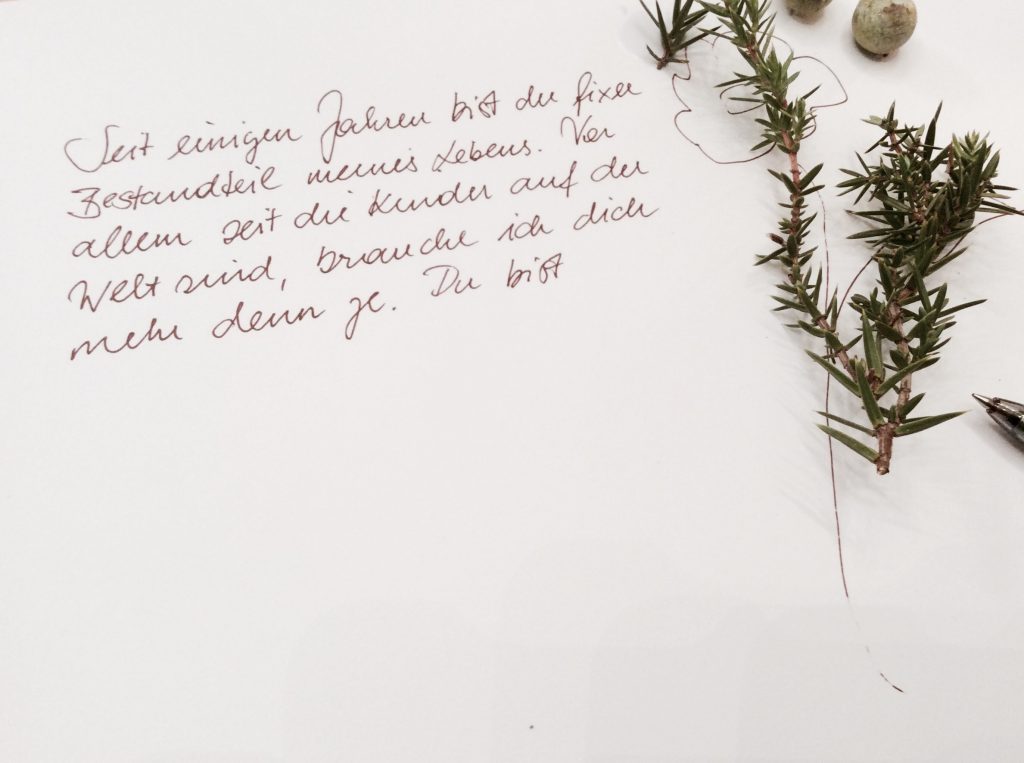 Seit einigen Jahren bist du fixer
Bestandteil meines Lebens. Vor
allem seit die Kinder auf der
Welt sind, brauche ich dich
mehr denn je. Du bist